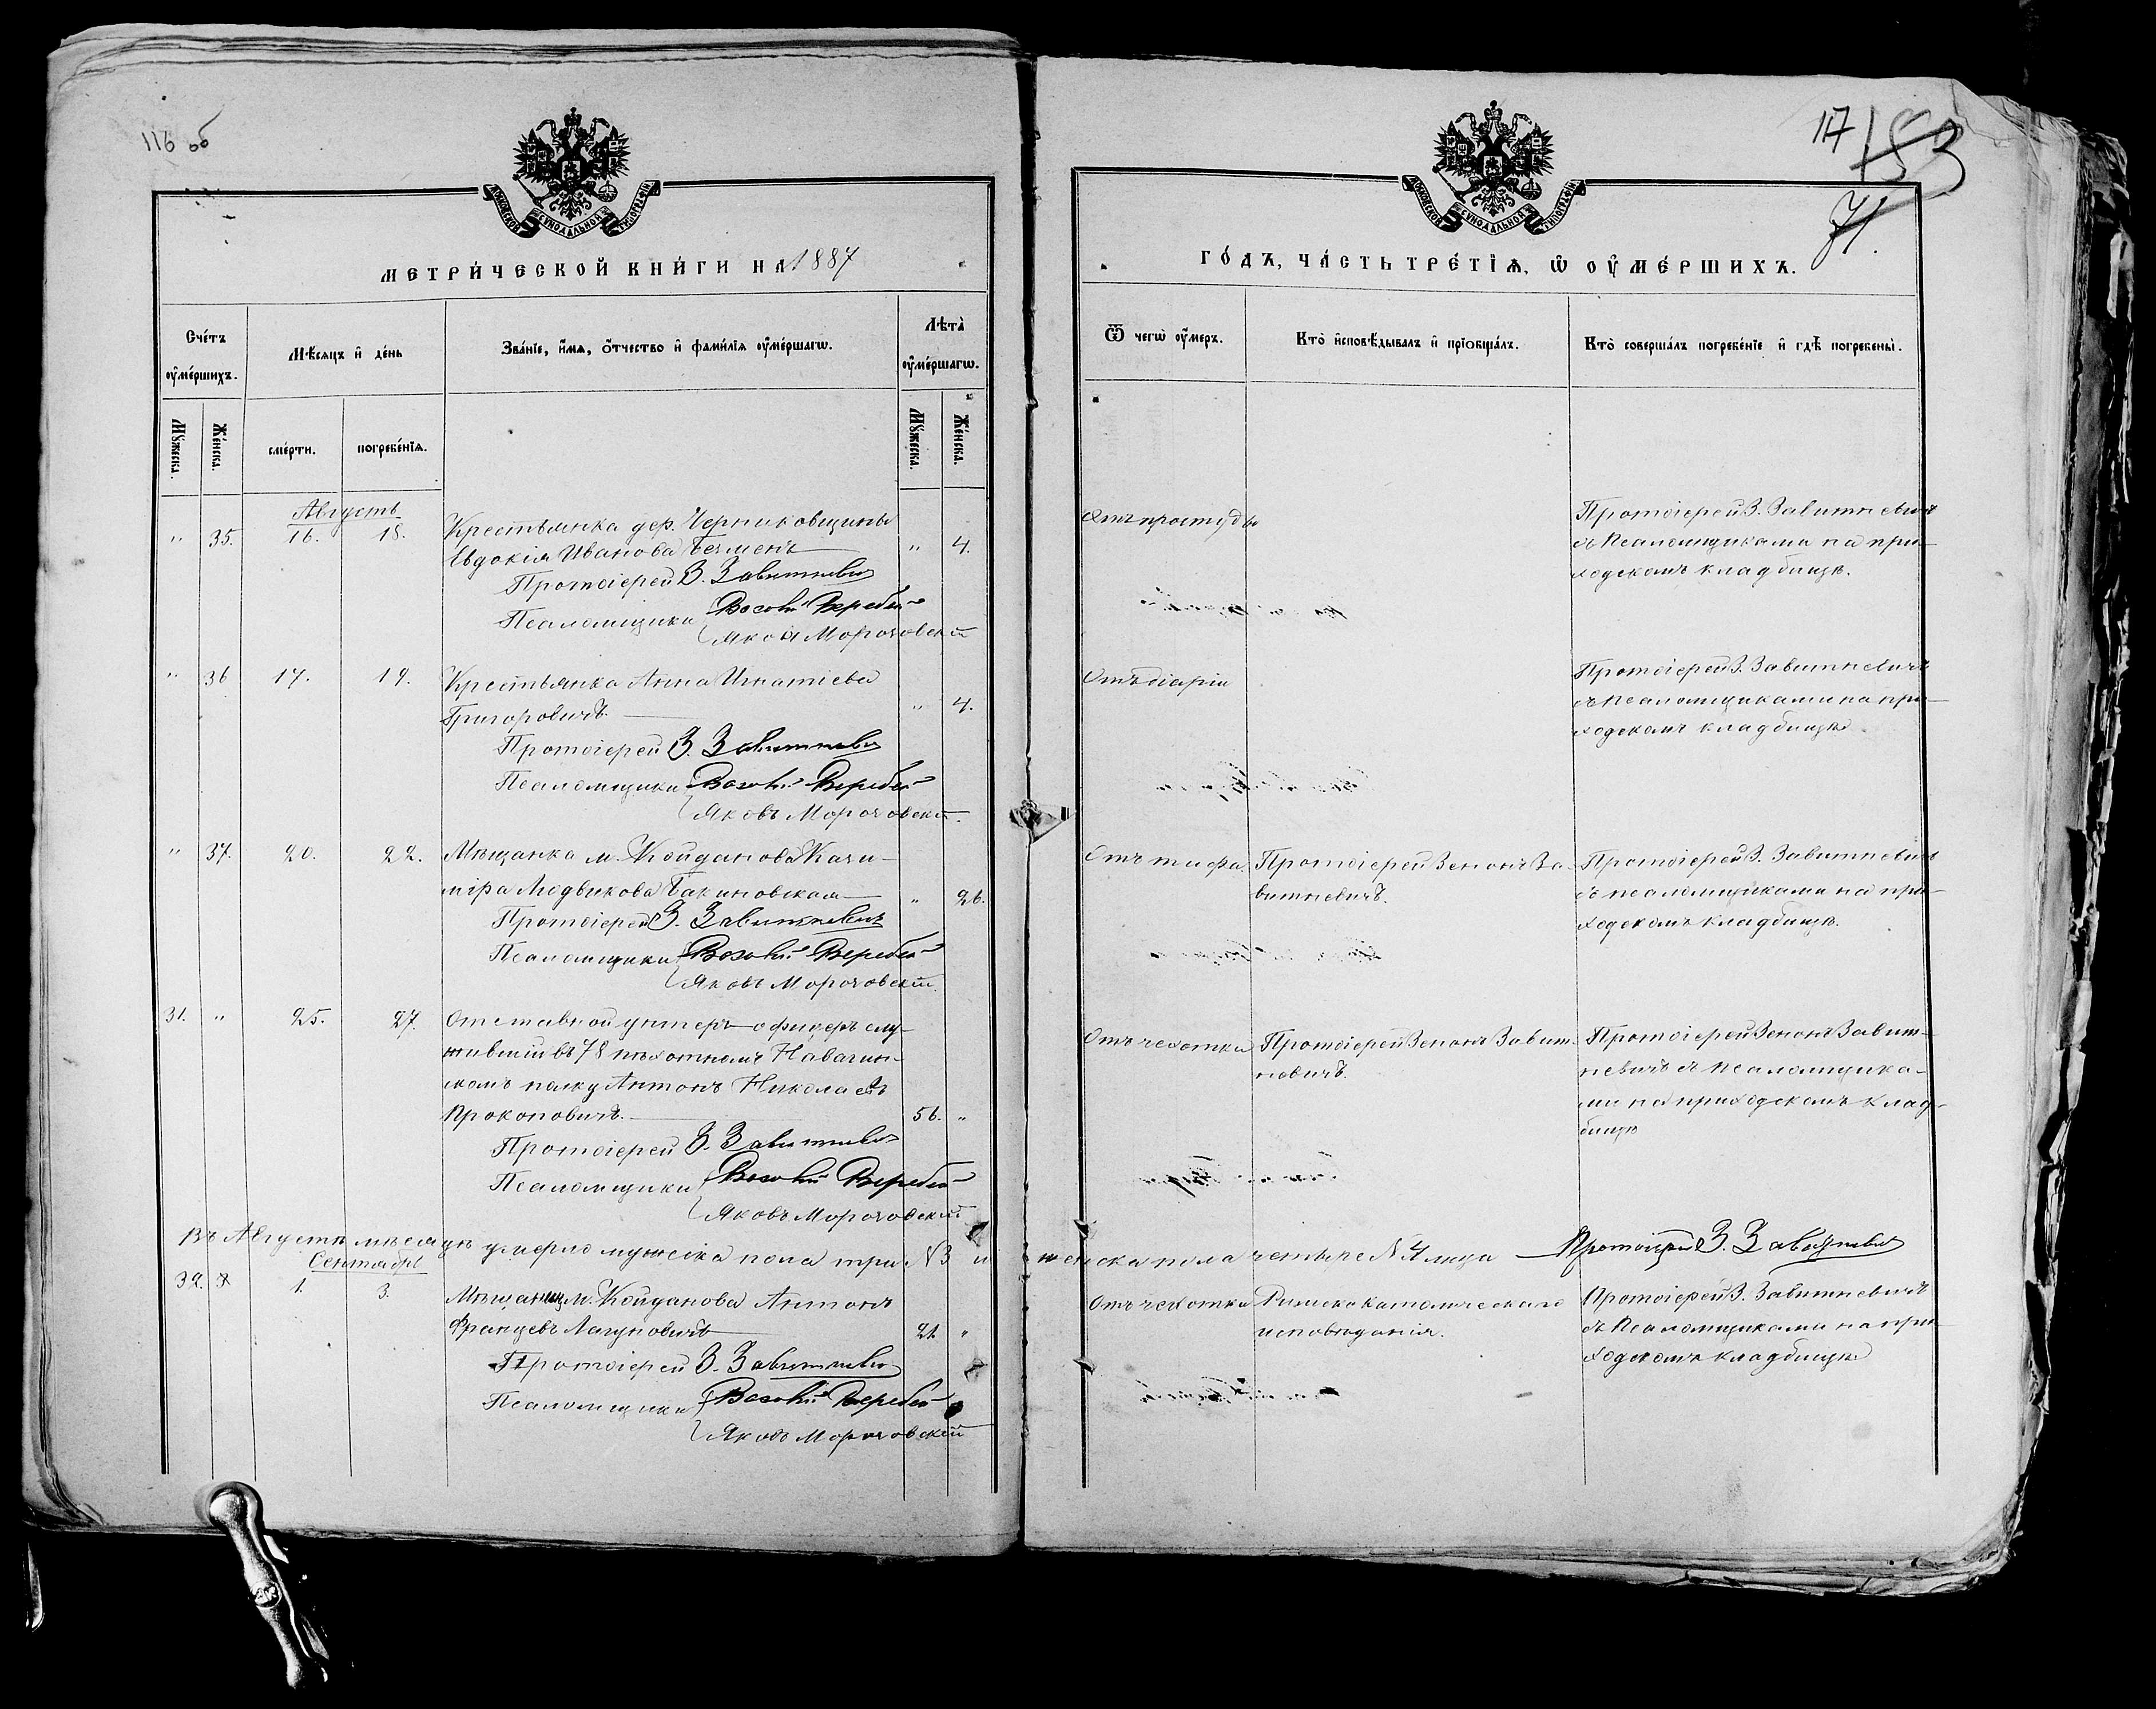 116 об
МОСКОВСКОЙ СѴНОДАЛЬНОЙ ТИПОГРАФІИ
МЕТРИ́ЧЕСКОЙ КНИ́ГИ НА 1887
Сче́тъ оу҆ме́ршихъ.
Мѣ́сяцъ и҆ де́нь
Зва́нїе, и҆́мѧ, ѻ҆́тчество и҆ фами́лїѧ оу҆ме́ршагѡ.
Лѣта̀ оу҆ме́ршагѡ.
Мꙋ́жеска.
Же́нска.
сме́рти.
погребе́нїѧ.
Мꙋ́жеска.
Же́нска.
Августъ
" 35. 16. 18. Крестьянка дер. Черниковщины
Евдокія Иванова Бечменъ " 4.
Протоіерей З. Завитневич
Псаломщики Воровей
Яковъ Морочовскій
" 36 17. 19. Крестьянка Анна Игнатіева
Григоровичъ. " 4.
Протоіерей З. Завитневич
Псаломщики Воровей
Яковъ Морочовскій.
" 37. 20. 22. Мѣщанка м. Койданова Кази-
міра Людвикова Бакиновская " 26.
Протоіерей З. Завитневичъ
Псаломщики
Яковъ Морочовскій.
31. " 25. 27. Отставной унтеръ-офицеръ слу-
жившій въ 78 пѣхотномъ Навагин-
скомъ полку Антонъ Николаевъ
Прокоповичъ. 56. "
Протоіерей З. Завитневич
Псаломщики
Яковъ Морочовскій
Въ Августѣ мѣсяцѣ умерло мужеска пола три N 3 и
Сентябрь
32. 1. 3. Мѣщанинъ м. Койданова Антонъ
Францевъ Лагуновичъ 21. "
Протоіерей З. Завитневич
Псаломщики
Яковъ Морочовскій
117 153
71.
МОСКОВСКОЙ СѴНОДАЛЬНОЙ ТИПОГРАФІИ
ГО́ДЪ, ЧА́СТЬ ТРЕ́ТЇѦ, Ѡ҆ ОУ҆МЕ́РШИХЪ.
Ѿ чегѡ̀ оу҆́меръ.
Кто̀ и҆сповѣ́дывалъ и҆ прїѻбща́лъ.
Кто̀ соверша́лъ погребе́нїе и҆ гдѣ̀ погребены̀.
Отъ простуды
Протоіерей З. Завитневичъ
съ Псаломщиками на при-
ходскомъ кладбищѣ.
Отъ діаріи
Протоіерей З. Завитневичъ
съ Псаломщиками на при-
ходскомъ кладбищѣ
Отъ тифа
Протоіерей Зенонъ За-
витневичъ.
Протоіерей З. Завитневичъ
съ псаломщиками на при-
ходскомъ кладбищѣ.
Отъ чахотки
Протоіерей Зенонъ Завит-
невичъ.
Протоіерей Зенонъ Завит-
невичъ съ псаломщика-
ми на приходскомъ клад-
бищѣ
женска пола четыре N 4 лица Протоіерей З. Завитневич
Отъ чахотки
Римско католическаго
исповѣданія.
Протоіерей З. Завитневичъ
съ Псаломщиками на при-
ходскомъ кладбищѣ